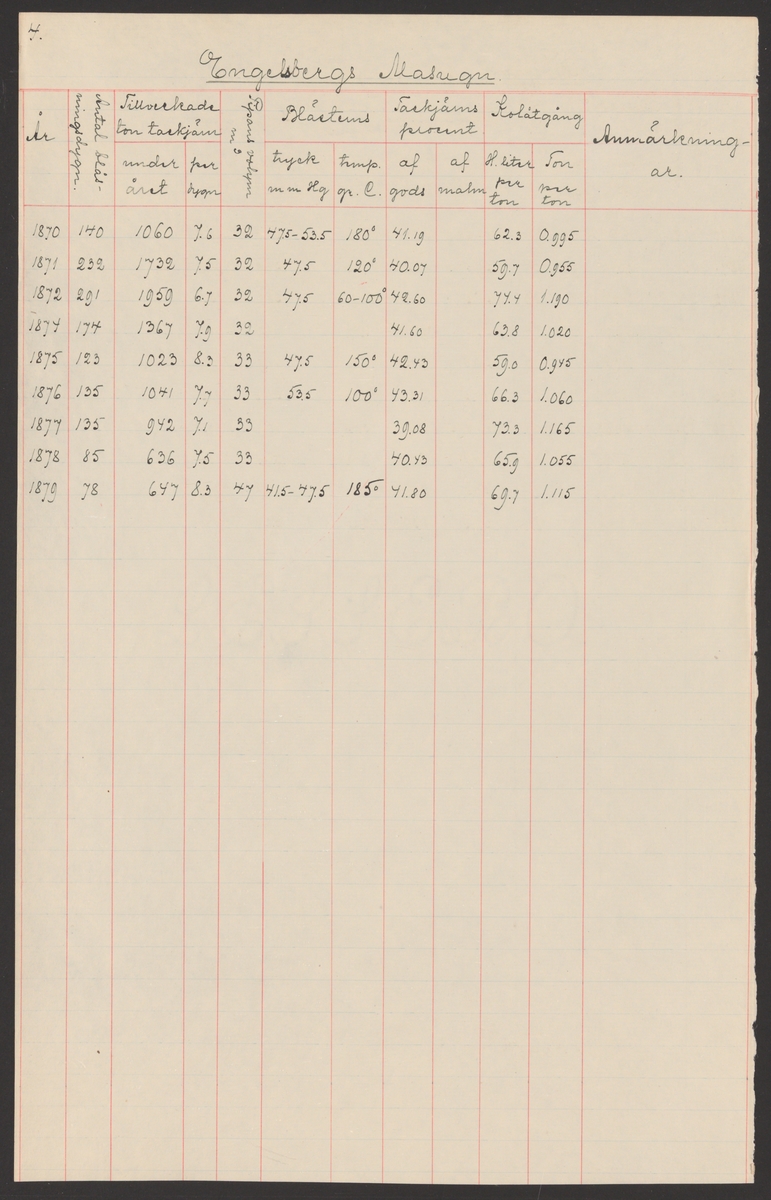 4.
Engelsbergs Masugn.
År
Antal blås-
ningsdygn.
Tillverkade
ton tackjärn
under
året
per
dygn
Pipans volym
m 3
Blästerns
tryck
m m Hg
temp.
gr. C.
Tackjärns
procent
af
gods
af
malm
Kolåtgång
H. liter
per
ton
Ton
per
ton
Anmärkning-
ar.
1870 140 1060 7.6 32 47.5-53.5 180° 41.19 62.3 0.995
1871 232 1732 7.5 32 47.5 120° 40.07 59.7 0.955
1872 291 1959 6.7 32 47.5 60-100° 42.60 74.4 1.190
1874 174 1367 7.9 32 41.60 63.8 1.020
1875 123 1023 8.3 33 47.5 150° 42.43 59.0 0.945
1876 135 1041 7.7 33 53.5 100° 43.31 66.3 1.060
1877 135 942 7.1 33 39.08 73.3 1.165
1878 85 636 7.5 33 40.43 65.9 1.055
1879 78 647 8.3 47 41.5-47.5 185° 41.80 69.7 1.115